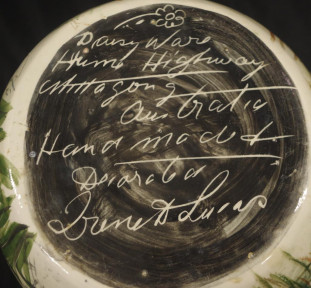 Daisy Ware
Hume Highway
Mittagong
Australia
Hand made &
Decorated
Irene D Lucas